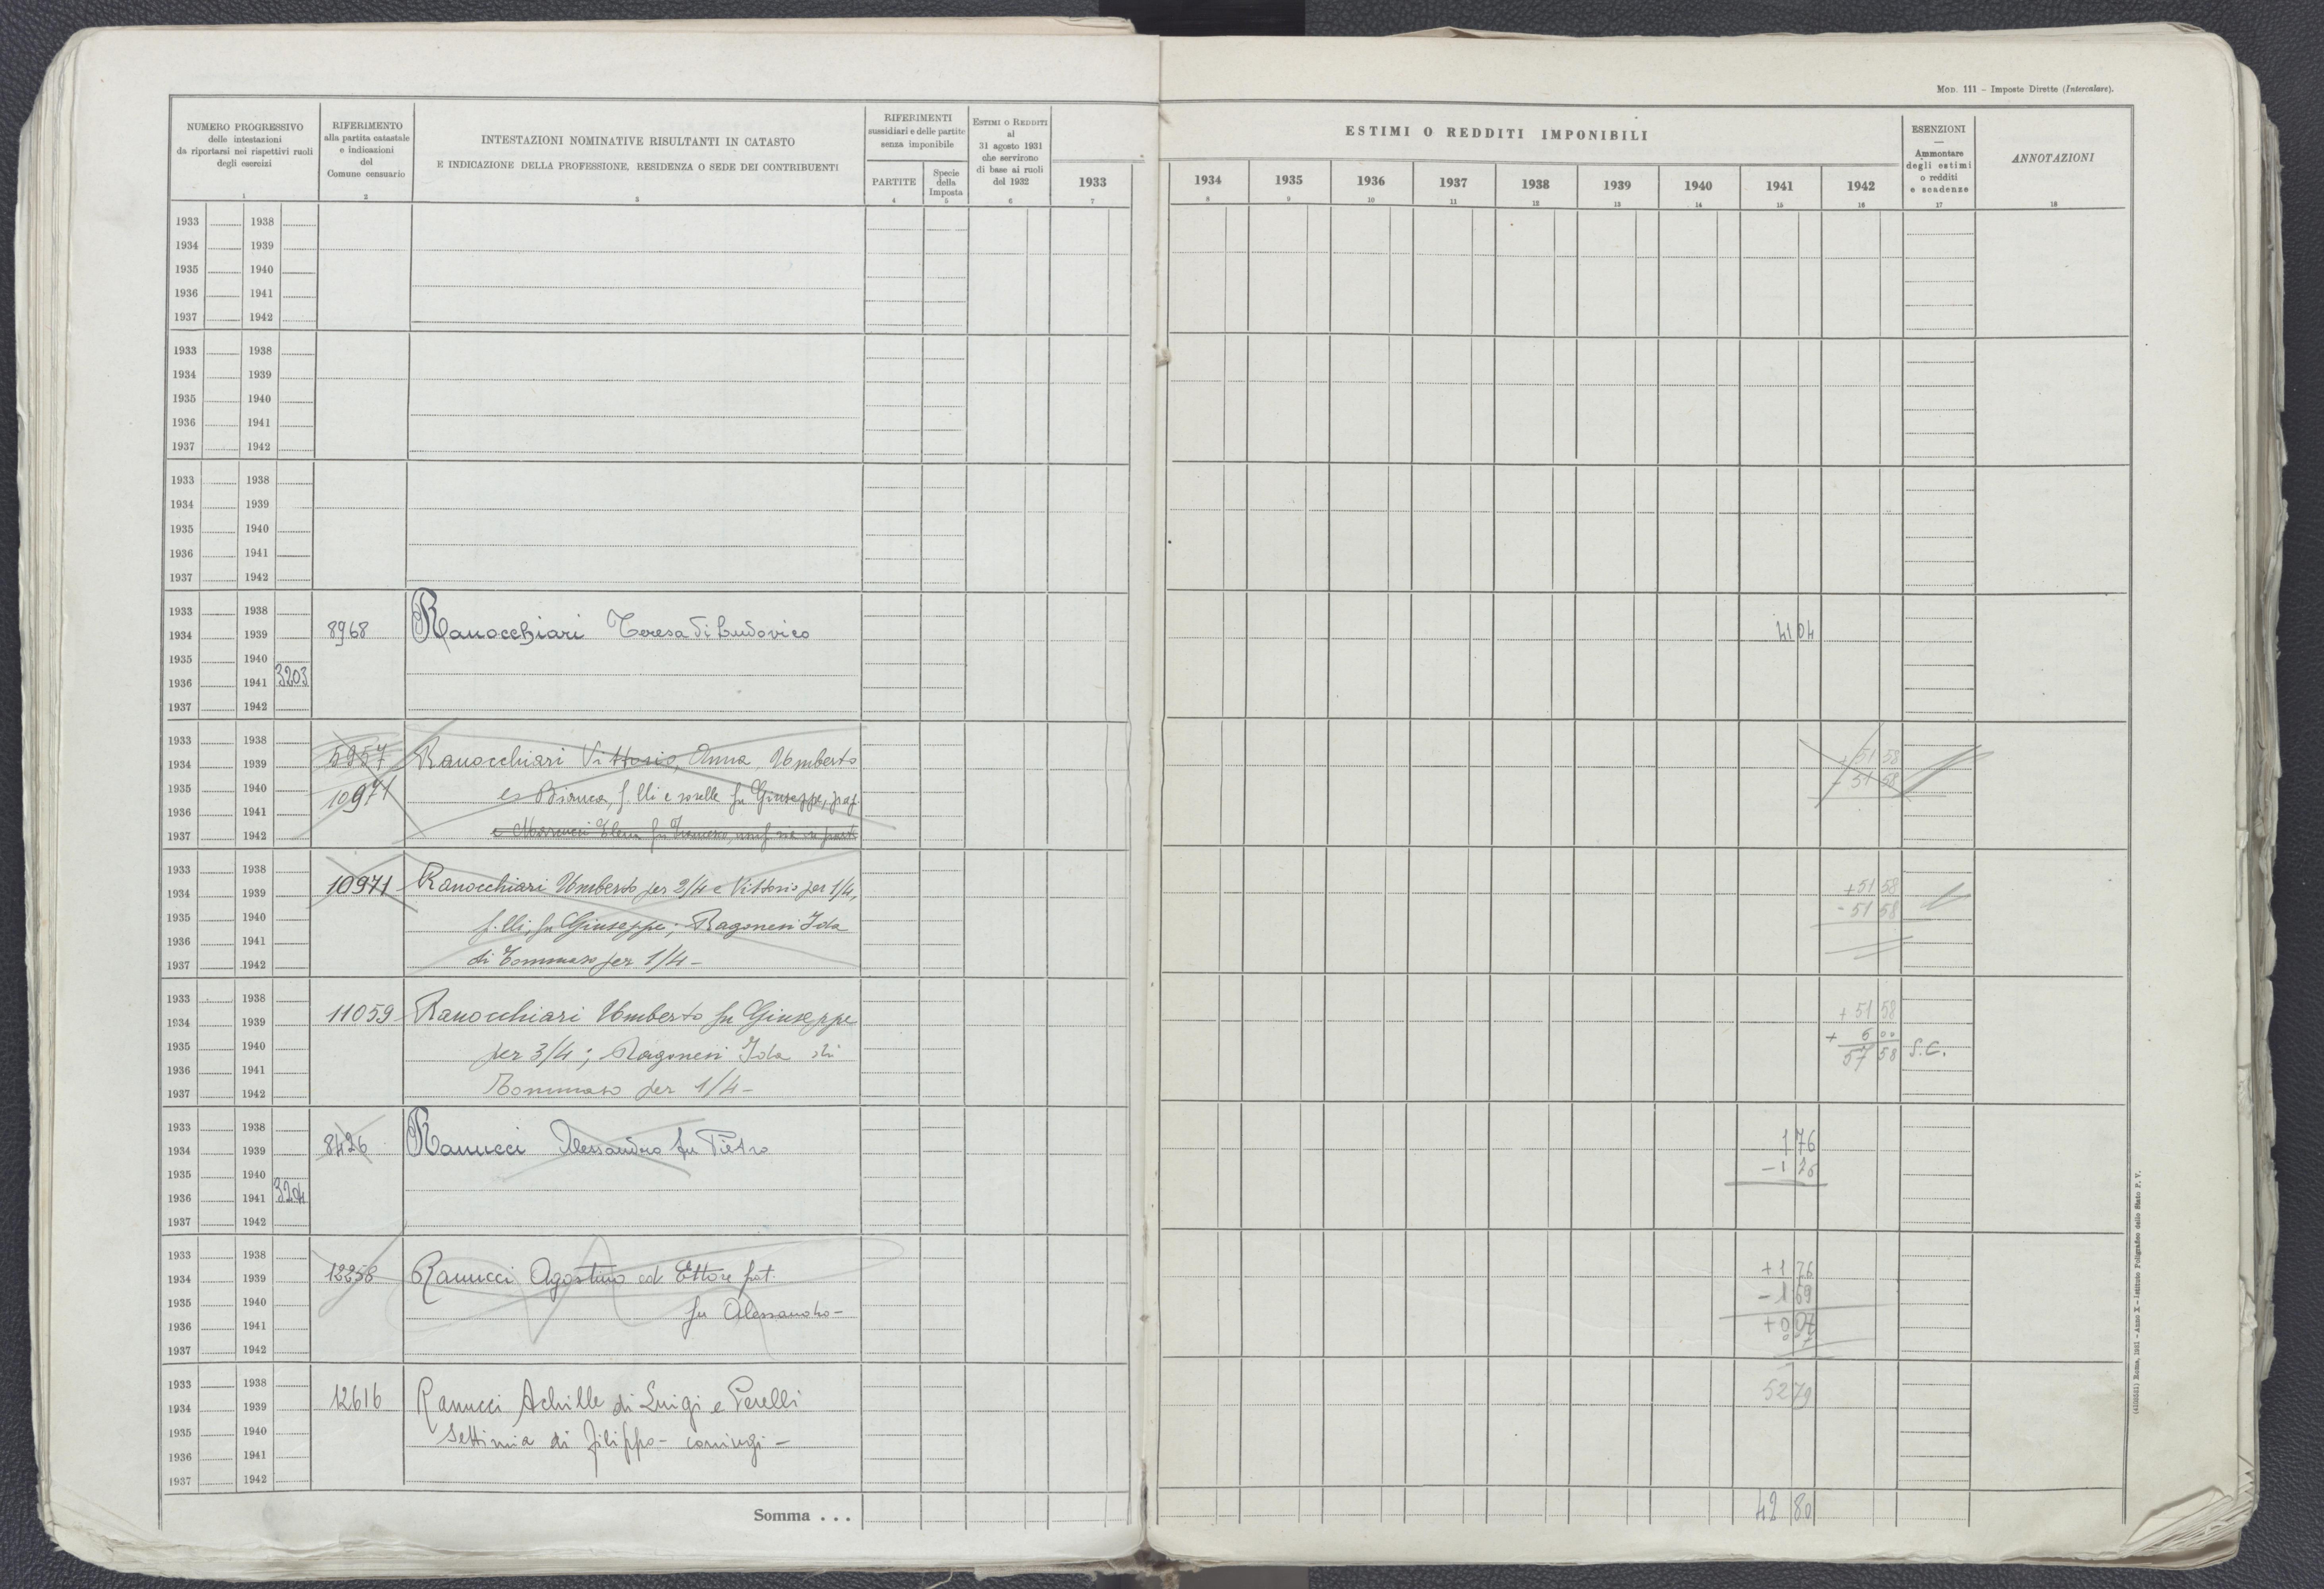 Mod. 111 - Imposte Dirette (Intercalare).
NUMERO PROGRESSIVO
delle intestazioni
da riportarsi nei rispettivi ruoli
degli esercizi
1
RIFERIMENTO
alla partita catastale
e indicazioni
del
Comune censuario
2
INTESTAZIONI NOMINATIVE RISULTANTI IN CATASTO
E INDICAZIONE DELLA PROFESSIONE, RESIDENZA O SEDE DEI CONTRIBUENTI
3
RIFERIMENTI
sussidiari e delle partite
senza imponibile
PARTITE
4
Specie
della
Imposta
5
ESTIMI O REDDITI
al
31 agosto 1931
che servirono
di base ai ruoli
del 1932
6
1933
7
ESTIMI O REDDITI IMPONIBILI
1934 1935 1936 1937 1938 1939 1940 1941 1942
8 9 10 11 12 13 14 15 16
ESENZIONI
Ammontare
degli estimi
o redditi
e scadenze
17
ANNOTAZIONI
18
1933 1938
1934 1939
1935 1940
1936 1941
1937 1942
1933 1938
1934 1939
1935 1940
1936 1941
1937 1942
1933 1938
1934 1939
1935 1940
1936 1941
1937 1942
1933 1938
1934 1939 8968 Ranocchiari Teresa di Ludovico 41 04
1935 1940
1936 1941 3203
1937 1942
1933 1938
1934 1939 5957 Ranocchiari Vittorio, Anna, Umberto + 51 58
1935 1940 10971 e Bianca, f.lli e sorelle fu Giuseppe, - 51 58
1936 1941
1937 1942
1933 1938
1934 1939 10971 Ranocchiari Umberto per 2/4 e Vittorio per 1/4, + 51 58
1935 1940 f.lli, fu Giuseppe; Ragonesi Ida - 51 58
1936 1941
1937 1942 di Tommaso per 1/4 -
1933 1938
1934 1939 11059 Ranocchiari Umberto fu Giuseppe + 51 58
1935 1940 per 3/4; Ragonesi Ida di + 6 00
1936 1941 57 58 S.C.
1937 1942 Tommaso per 1/4 -
1933 1938
1934 1939 8426 Ranucci Alessandro fu Pietro 1 76
1935 1940 - 1 76
1936 1941 3204
1937 1942
1933 1938
1934 1939 12258 Ranucci Agostino ed Ettore frat. + 1 76
1935 1940 fu Alessandro - - 1 69
1936 1941 + 0 07
1937 1942
1933 1938
1934 1939 12616 Ranucci Achille di Luigi e Perelli 52 79
1935 1940 Settimia di Filippo - coniugi -
1936 1941
1937 1942
Somma . . . 42 80
Roma, 1931 - Anno X - Istituto Poligrafico dello Stato P. V.